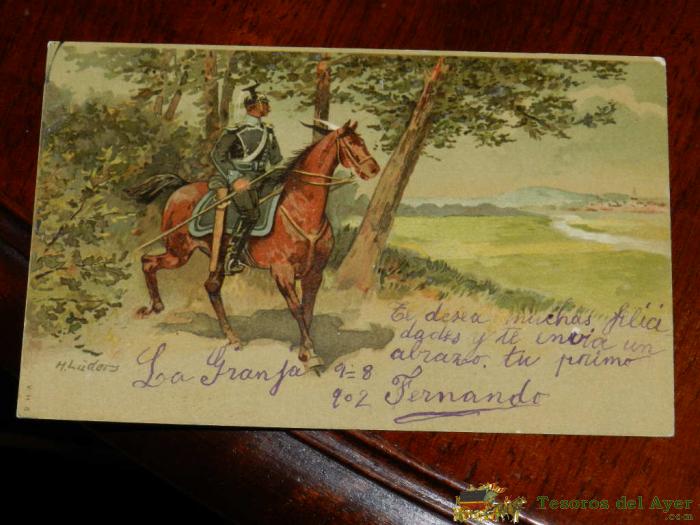 Te desea muchas felici
dades y te invia un
abrazo, tu primo
Fernando
La Granja 9=8
902
H. Lüders
Tesoros del Ayer
.com